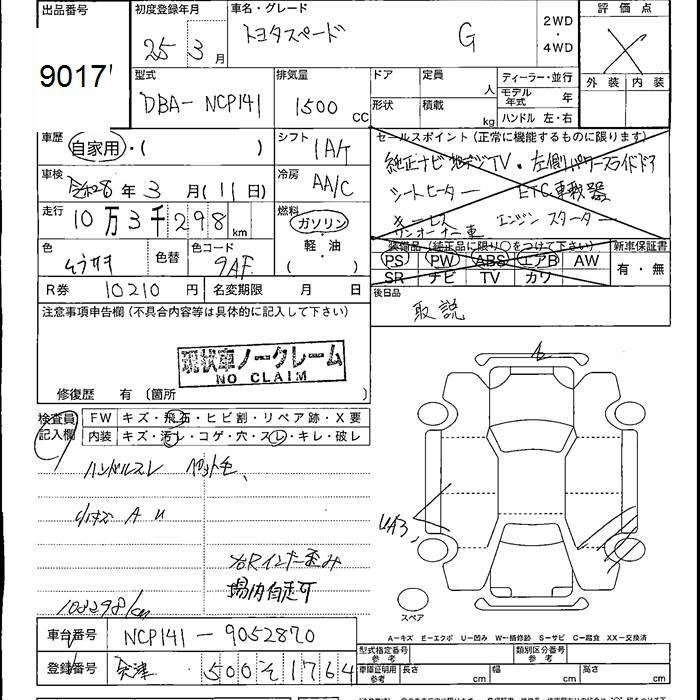 出品番号 初度登録年月日 車名・グレード 2WD・4WD 評価点
9017
25年 3月 トヨタスペード G
外装 内装
型式 排気量 ドア 定員 人 ディーラー・並行
DBA-NCP141 1500 CC 形状 積載 kg モデル年式 年
ハンドル 左・右
車歴 自家用・( ) シフト IAT
セールスポイント(正常に機能するものに限ります)
純正ナビ 地デジTV・左側パワースライドドア
車検 令和8年 3月(11日) 冷房 AA/C
シートヒーター ETC車載器
走行 10万3千298km 燃料 ガソリン・軽油 ( )
キーレス エンジンスターター
ワンオーナー車
色 ムラサキ 色替 色コード 9AF
装備品(純正品に限り○をつけて下さい) 新車保証書
PS PW ABS エアB AW 有・無
SR ナビ TV カワ
R券 10210円 名変期限 月 日
後日品
取説
注意事項申告欄(不具合内容等は具体的に記入して下さい)
現状車ノークレーム
NO CLAIM
修復歴 有(箇所 )
検査員記入欄 FW キズ・飛石・ヒビ割・リペア跡・X要
内装 キズ・汚レ・コゲ・穴・スレ・キレ・破レ
ハンドルスレ ペット毛、
A U
UA3,
場内自走可
103298/km
スペア
A−キズ E−エクボ U−凹み W−補修跡 S−サビ C−腐食 XX−交換済
車台番号 NCP141-9052870
型式指定番号 参考 類別区分番号 参考
登録番号 会津 500 そ 1764
車庫証明用 参考 長さ cm 幅 cm 高さ cm